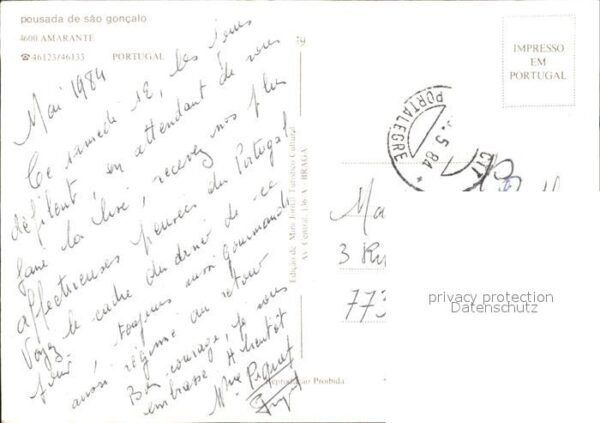 pousada de são gonçalo
4600 AMARANTE
☎ 46123/46133 PORTUGAL
Mai 1984
Ce samedi 12, les jours
défilent, en attendant de vous
faire la bise, recevez nos plus
affectueuses pensées du Portugal
Voyez le cadre du dîner de ce
jour, toujours aussi gourmande
aussi régime au retour
Bon courage, je vous
embrasse. A bientôt
Mme Piquet
Edição de Mais Jornal Turístico Cultural
Av. Central, 136-A - BRAGA
Reprodução Proibida
IMPRESSO
EM
PORTUGAL
PORTALEGRE
5 84
CTT
Ma
3 Ru
773
privacy protection
Datenschutz